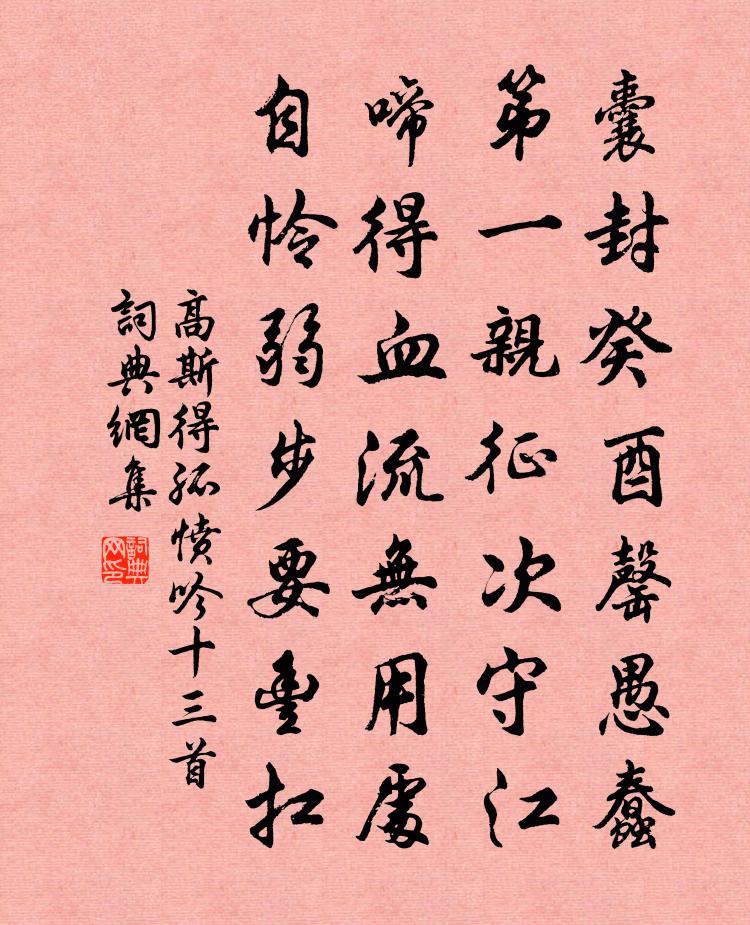 囊封癸酉罄愚蠢
第一親征次守江
啼得血流無用處
自怜弱步要豊扛
高斯得孤憤吟十三首
詞典網集
詞典网印